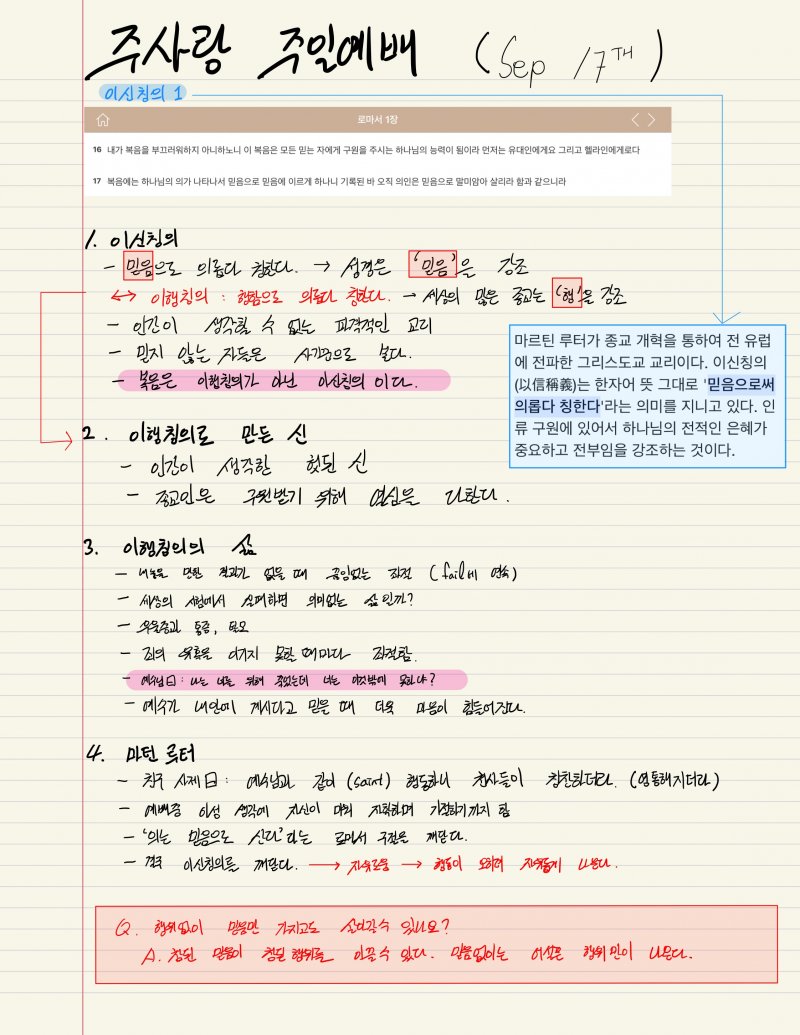 주사랑 주일예배 (Sep 17TH)
이신칭의 1
로마서 1장
16 내가 복음을 부끄러워하지 아니하노니 이 복음은 모든 믿는 자에게 구원을 주시는 하나님의 능력이 됨이라 먼저는 유대인에게요 그리고 헬라인에게로다
17 복음에는 하나님의 의가 나타나서 믿음으로 믿음에 이르게 하나니 기록된 바 오직 의인은 믿음으로 말미암아 살리라 함과 같으니라
1. 이신칭의
- 믿음으로 의롭다 칭한다. → 성경은 '믿음'을 강조
↔ 이행칭의 : 행함으로 의롭다 칭한다. → 세상의 많은 종교는 '행'을 강조
- 인간이 생각할 수 없는 파격적인 교리
- 믿지 않는 자들은 사기꾼으로 본다.
- 복음은 이행칭의가 아닌 이신칭의 이다.
마르틴 루터가 종교 개혁을 통하여 전 유럽
에 전파한 그리스도교 교리이다. 이신칭의
(以信稱義)는 한자어 뜻 그대로 '믿음으로써
의롭다 칭한다'라는 의미를 지니고 있다. 인
류 구원에 있어서 하나님의 전적인 은혜가
중요하고 전부임을 강조하는 것이다.
2. 이행칭의로 만든 신
- 인간이 생각한 헛된 신
- 종교인은 구원받기 위해 열심을 다한다.
3. 이행칭의의 삶
- 내놓을 만한 결과가 없을 때 끊임없는 좌절 (fail의 연속)
- 세상의 시험에서 실패하면 의미없는 삶인가?
- 우울증과 통증,
- 죄의 유혹을 이기지 못할 때마다 좌절함.
- 예수님曰 : 나는 너를 위해 죽었는데 너는 이것밖에 못하냐?
- 예수가 내안에 계시다고 믿을 때 더욱 마음이 힘들어진다.
4. 마틴 루터
- 친구 사제曰 : 예수님과 같이 (saint) 행동하니 천사들이 칭찬하더다. (영통해지더다)
- 예배중 이성 생각에 자신이 매워 자학하며 기절하기까지 함
- '의는 믿음으로 산다'라는 로마서 구절을 깨닫다.
- 결국 이신칭의를 깨닫다. → 자유로움 → 행동이 오히려 자유롭게 나온다.
Q. 행위없이 믿음만 가지고도 살아갈수 있나요?
A. 참된 믿음이 참된 행위를 이끌수 있다. 믿음없이는 어설픈 행위만이 나온다.